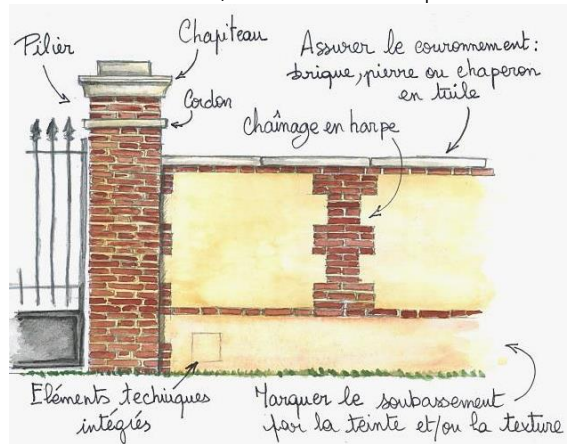 Pilier
Chapiteau
Cordon
Assurer le couronnement :
brique, pierre ou chaperon
en tuile
Chaînage en harpe
Eléments techniques
intégrés
Marquer le soubassement
par la teinte et/ou la texture